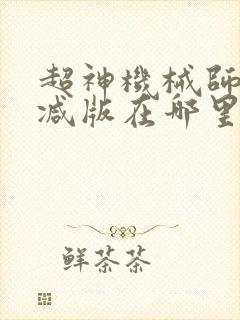 超神機械師
减版在哪里
鲜茶茶